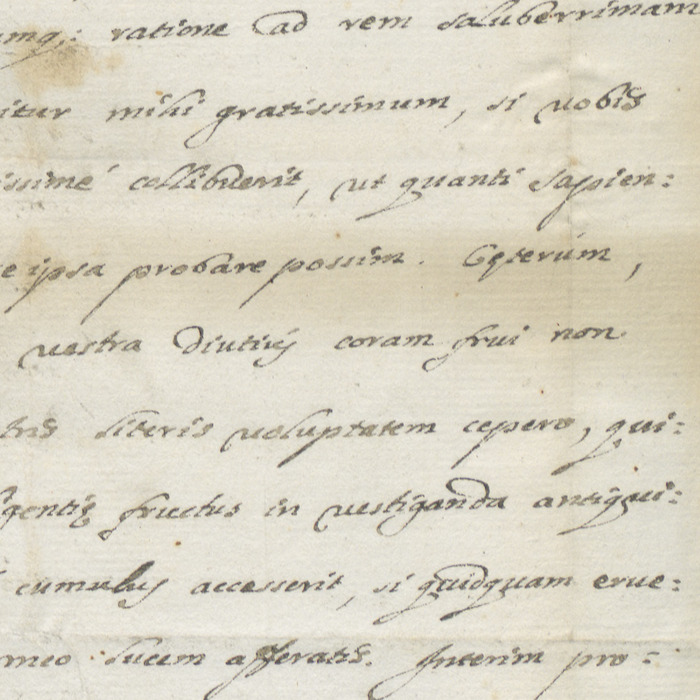 umq; ratione ad rem saluberrimam
itur mihi gratissimum, si vobis
issimé collibuerit, ut quanti sapien:
e ipsa probare possim. Cęterùm,
vestra diutiùs coram frui non
tris literis voluptatem cepero, qui:
gentię fructus in vestiganda antiqui:
cumulus accesserit, si quidquam erue:
meo lucem afferatis. Interim pro: